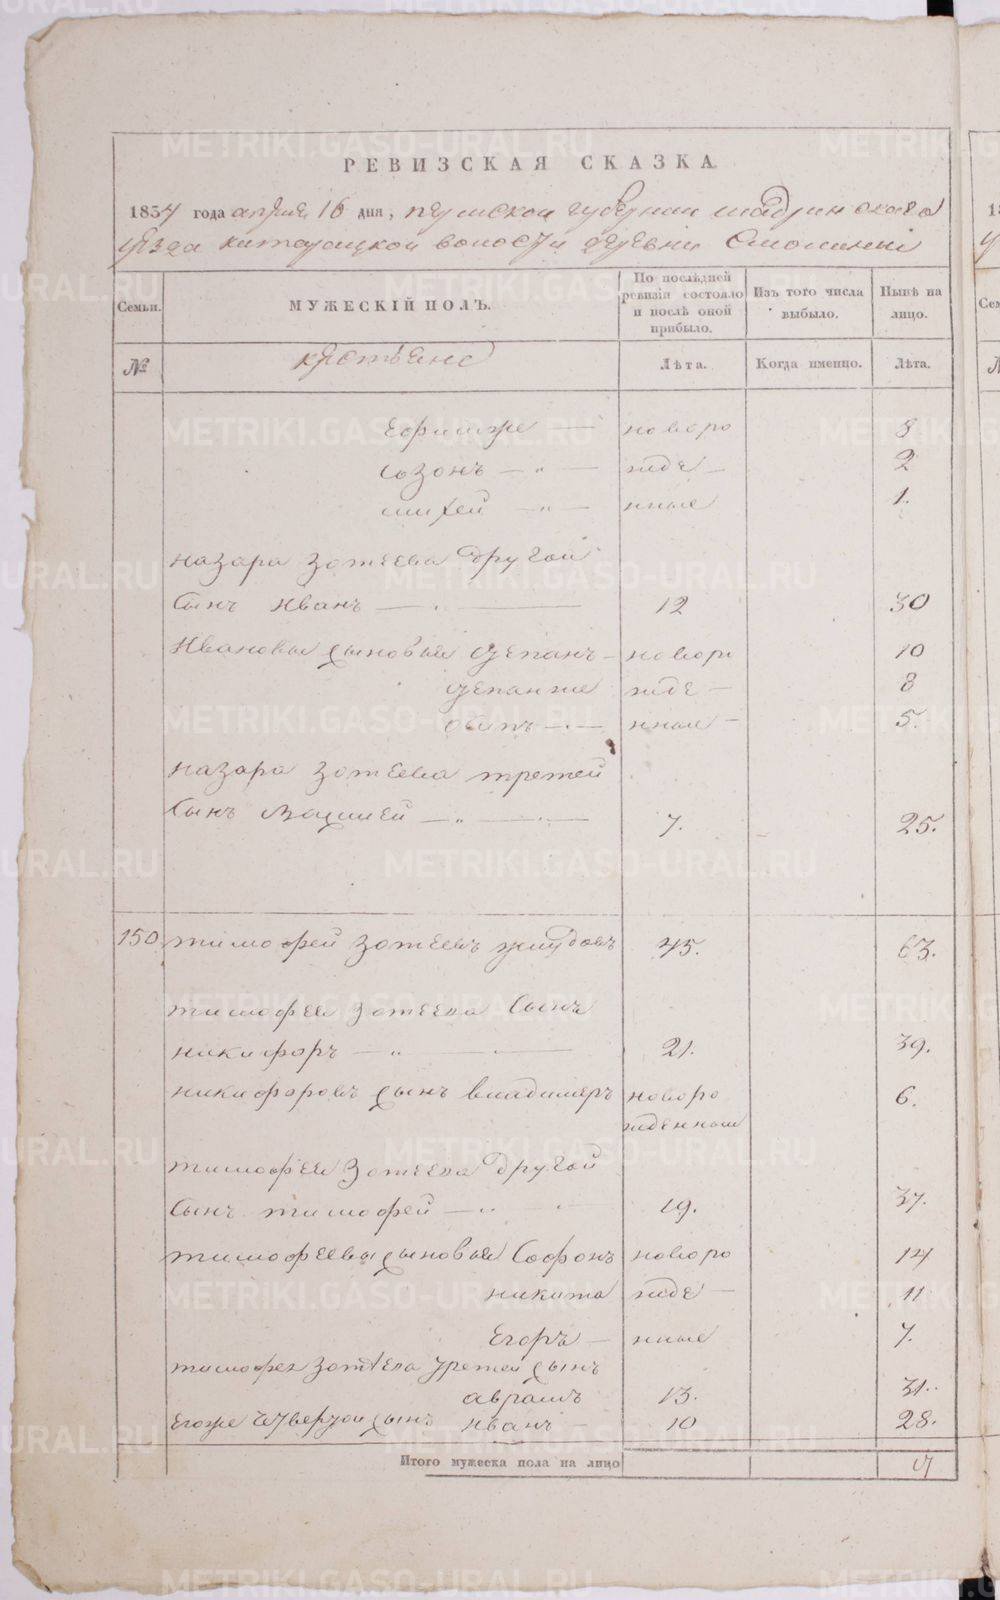 РЕВИЗСКАЯ СКАЗКА.
1834 года апреля 16 дня, пермской губернии шадринскаго
уезда деревни
Семьи. МУЖЕСКІЙ ПОЛЪ. По послѣдней ревизіи состояло и послѣ оной прибыло. Изъ того числа выбыло. Нынѣ на лицо.
№ крестьяне Лѣта. Когда именно. Лѣта.
Ефимже — новоро 8
Созонъ — жде 2
михей — нные 1.
назара зотеева другой
Сынъ Иванъ — 12 30
Ивановы сыновья степанъ новоро 10
степанже жде 8
осипъ — нные 5.
назара зотеева третей
Сынъ — 7. 25.
150 тимофей зотеевъ 45. 63.
тимофея зотеева Сынъ
никифоръ — 21. 39.
никифоровъ сынъ владимеръ новоро 6.
жденный
тимофея зотеева другой
Сынъ тимофей — 19. 37.
тимофеевы сыновья Софонъ новоро 14
никита жде 11
Егоръ — нные 7.
тимофея зотеева третей сынъ
аврамъ 13. 31.
Егоже четвертой сынъ иванъ 10 28.
Итого мужеска пола на лицо 17
METRIKI.GASO-URAL.RU